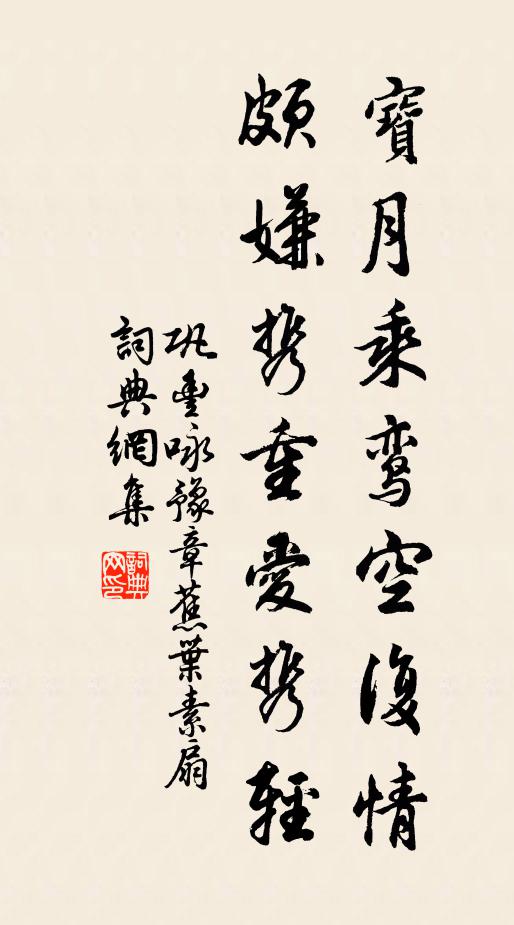 寶月乘鸾空復情
頗嫌携重愛携輕
巩豊咏豫章蕉葉素扇
詞典網集
詞典
网印